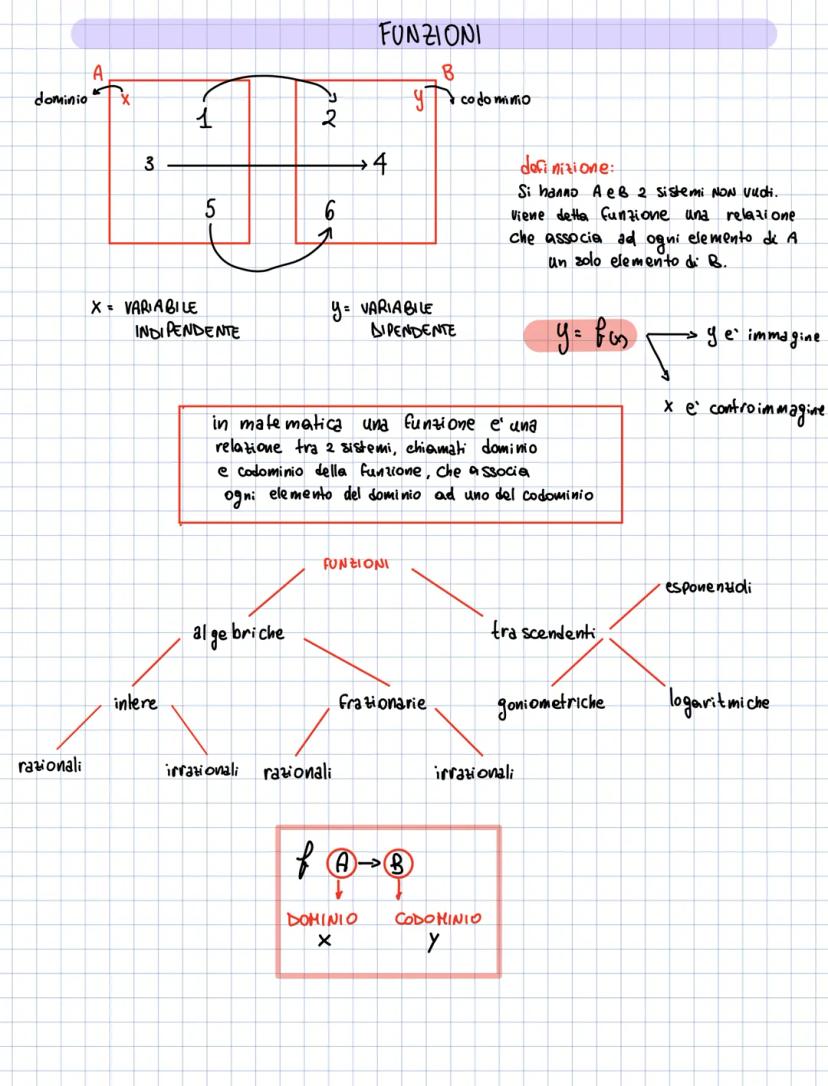 FUNZIONI
A
B
dominio
x
y
codominio
1
2
3
4
5
6
definizione:
Si hanno A e B 2 sistemi NON vuoti.
Viene detta funzione una relazione
che associa ad ogni elemento di A
un solo elemento di B.
X = VARIABILE
INDIPENDENTE
y = VARIABILE
DIPENDENTE
y = f(x)
y e' immagine
x e' controimmagine
in matematica una funzione e' una
relazione tra 2 sistemi, chiamati dominio
e codominio della funzione, che associa
ogni elemento del dominio ad uno del codominio
FUNZIONI
esponenziali
algebriche
trascendenti
intere
frazionarie
goniometriche
logaritmiche
razionali
irrazionali
razionali
irrazionali
f A → B
DOMINIO
CODOMINIO
X
y